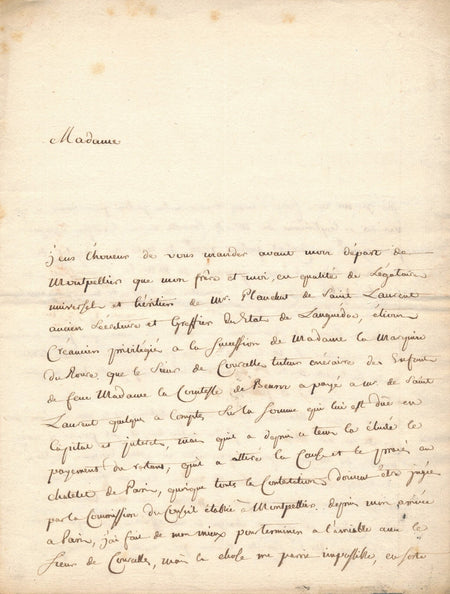 Madame
j'eus l'honeur de vous mander avant mon départ de
Montpellier que mon frère et moi, en qualité de Légataire
universel et héritier de Mr. Planchut de Saint Laurent
ancien Sécrétaire et Greffier du Etat de Languedoc, etions
Créancier privilégiés a la succession de Madame la Marquise
du Roure que le Sieur de Courcelles tuteur onéraire des Enfants
de feue Madame la Comtesse de a payé a mr. de Saint
Laurent quelque a comptes sur la somme qui lui est düe en
Capital et interets, mais qu'il a depuis le
payement du restant, qu'il a attiré la Cause et le procès au
chatelet de Paris, quoique touts la Contestations doivent être jugées
par la Commission du Conseil établie a Montpellier. depuis mon arrivée
a Paris, j'ai fait de mon mieux pour terminer a l'amiable avec le
Sieur de Courcelles, mais la chose me paroit impossible, en sorte